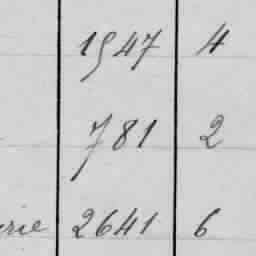 1547 4
781 2
rie 2641 6